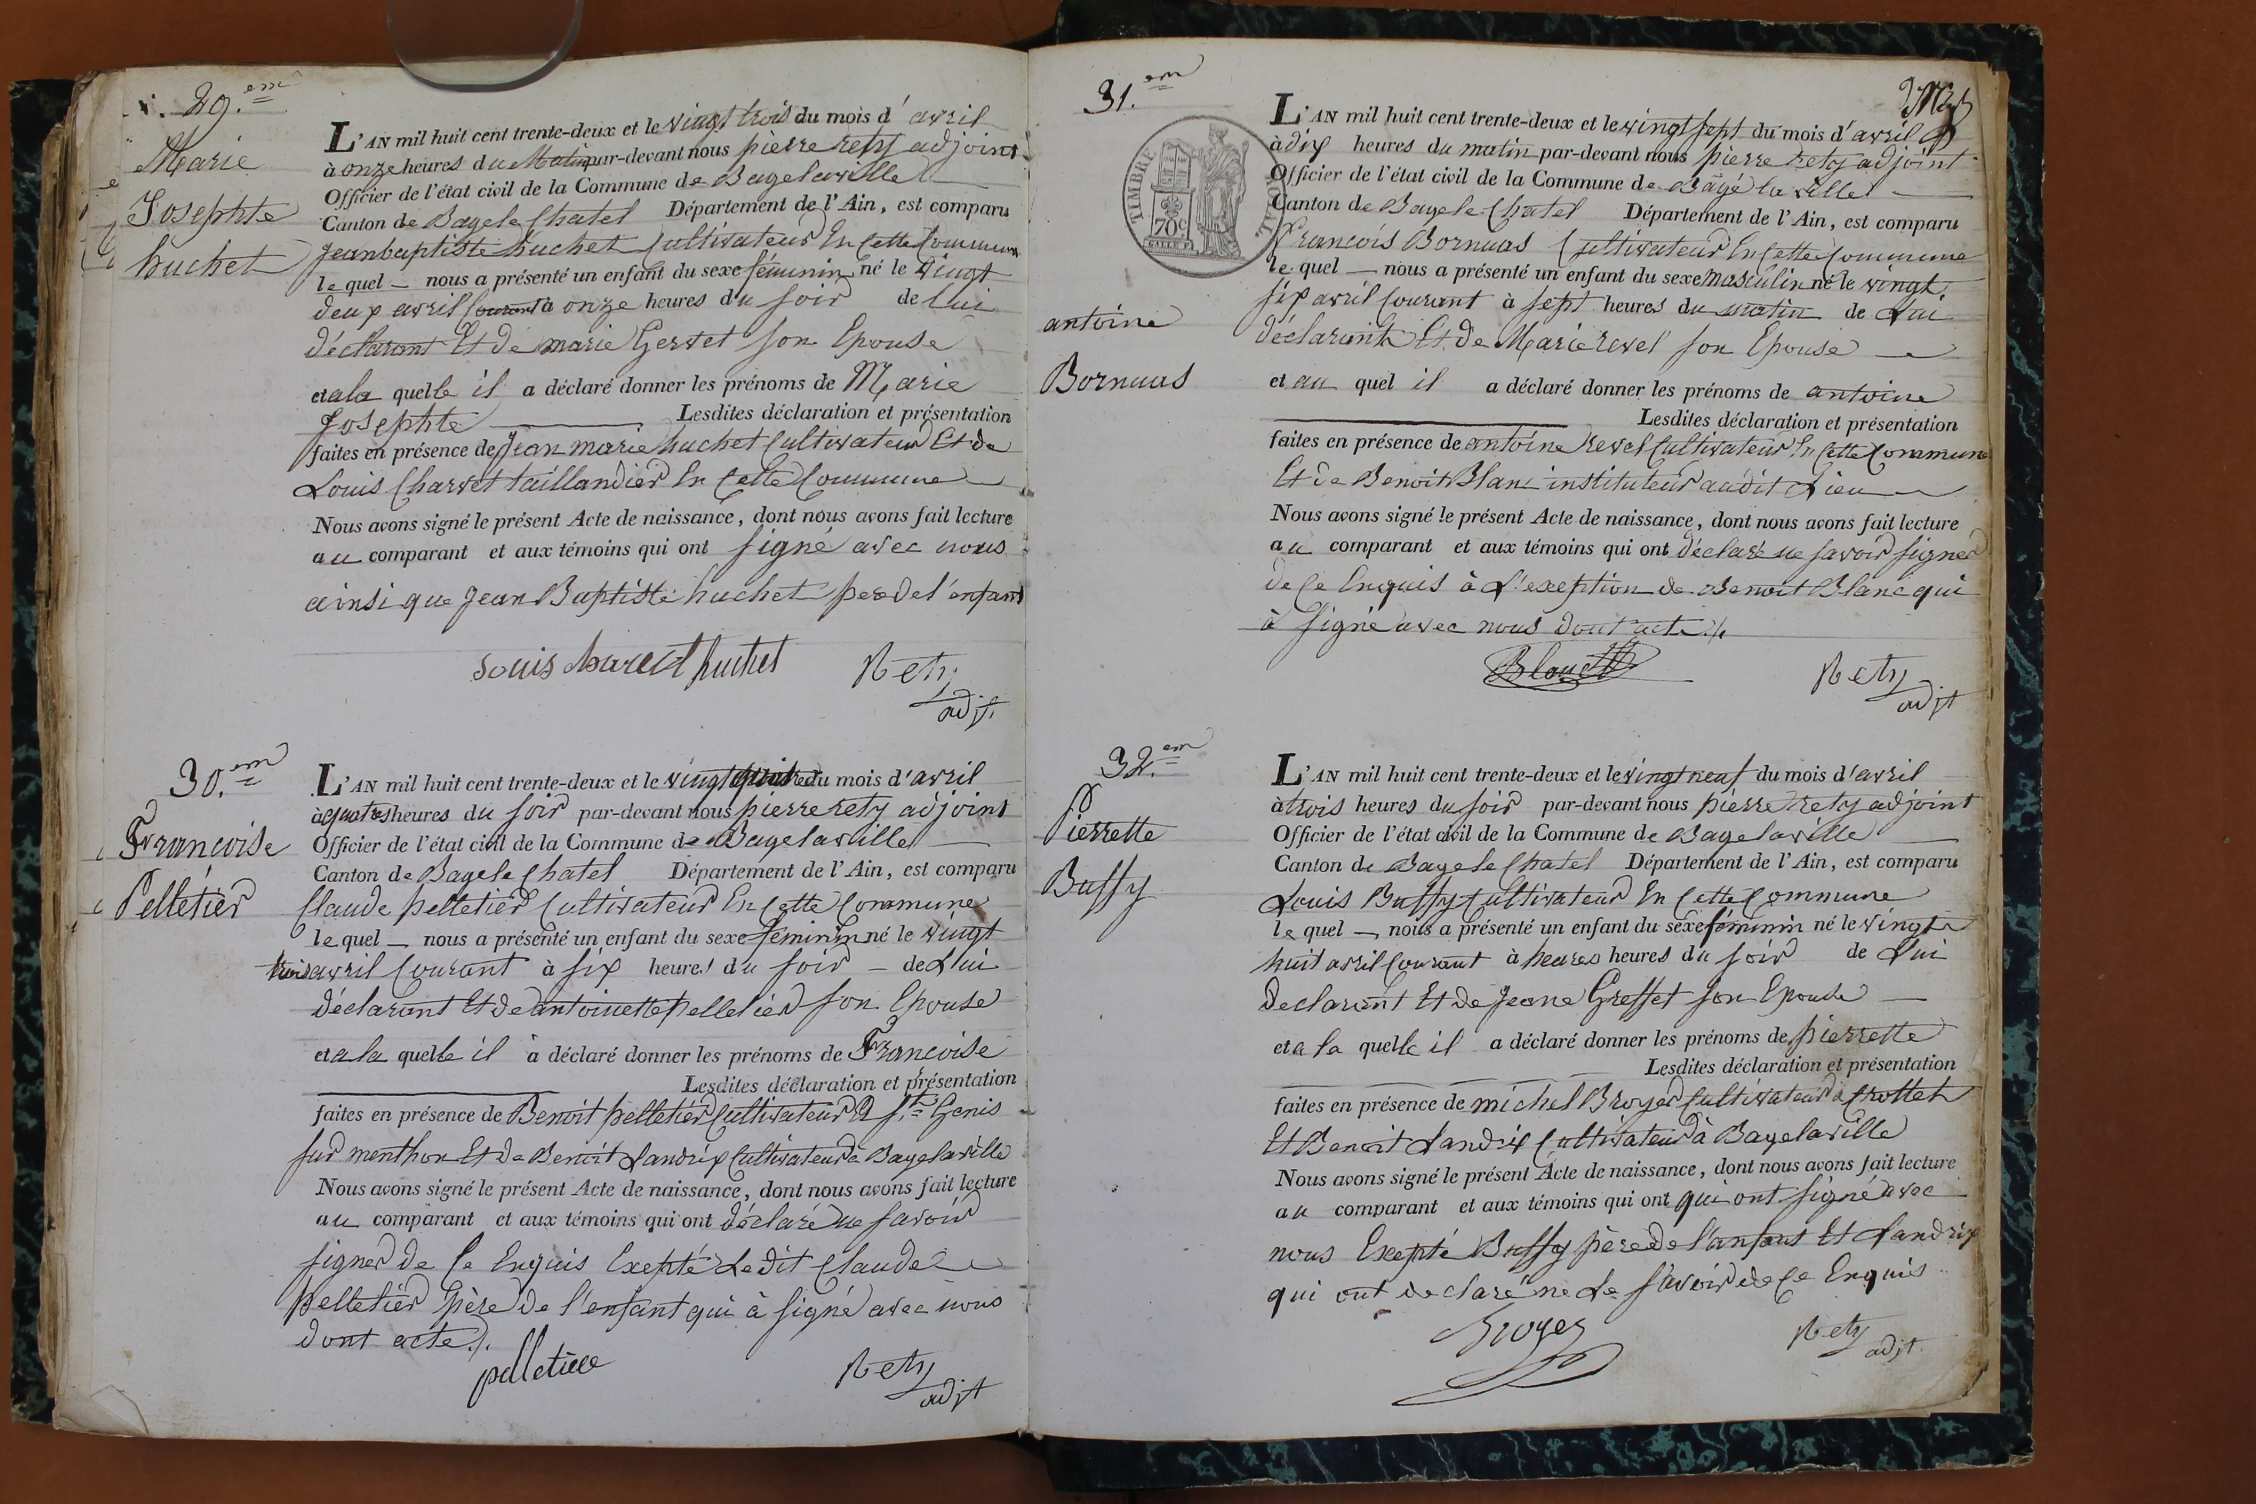 N. 29.em
Marie
Josephte
huchet
L'AN mil huit cent trente-deux et le vingt trois du mois d'avril
à onze heures du Matin par-devant nous pierre rety adjoint
Officier de l'état civil de la Commune de Bagelaville
Canton de Bagele Chatel Département de l'Ain, est comparu
jeanbaptiste huchet Cultivateur En Cette Commune
le quel nous a présenté un enfant du sexe féminin né le vingt
deux avril Courant à onze heures du soir de lui
déclarant Et de marie Gervet son Epouse
et a la quelle il a déclaré donner les prénoms de Marie
Josephte Lesdites déclaration et présentation
faites en présence de Jean marie huchet Cultivateur Et de
Louis Charvet taillandier En Cette Commune
Nous avons signé le présent Acte de naissance, dont nous avons fait lecture
au comparant et aux témoins qui ont signé avec nous
ainsi que Jean Baptiste huchet pere de l'enfant
Louis charvet huchet Rety
adjt.
30.em
Francoise
Pelletier
L'AN mil huit cent trente-deux et le vingt quatre du mois d'avril
à quatre heures du soir par-devant nous pierre rety adjoint
Officier de l'état civil de la Commune de Bagelaville
Canton de Bagele Chatel Département de l'Ain, est comparu
Claude pelletier Cultivateur En Cette Commune
le quel nous a présenté un enfant du sexe féminin né le vingt
trois avril Courant à six heures du soir de Lui
déclarant Et de antoinette pelletier son Epouse
et a la quelle il a déclaré donner les prénoms de Francoise
Lesdites déclaration et présentation
faites en présence de Benoit pelletier Cultivateur à St. Genis
sur menthon Et de Benoit Landrix Cultivateur à Bagelaville
Nous avons signé le présent Acte de naissance, dont nous avons fait lecture
au comparant et aux témoins qui ont déclaré ne savoir
signer de Ce Enquis Exepté Ledit Claude
pelletier père de l'enfant qui à signé avec nous
dont acte ./.
pelletier Rety
adjt
31.em
antoine
Bornuas
TIMBRE ROYAL
70c
L'AN mil huit cent trente-deux et le vingt sept du mois d'avril
à dix heures du matin par-devant nous pierre rety adjoint
Officier de l'état civil de la Commune de Bagé la ville
Canton de Bagele Chatel Département de l'Ain, est comparu
François Bornuas Cultivateur En Cette Commune
le quel nous a présenté un enfant du sexe masculin né le vingt
six avril Courant à sept heures du matin de Lui
déclarant Et de Marie revel son Epouse
et au quel il a déclaré donner les prénoms de antoine
Lesdites déclaration et présentation
faites en présence de antoine revel Cultivateur En Cette Commune
Et de Benoit Blanc instituteur audit Lieu
Nous avons signé le présent Acte de naissance, dont nous avons fait lecture
au comparant et aux témoins qui ont déclaré ne savoir signer
de Ce Enquis à L'exeption de Benoit Blanc qui
à signé avec nous dont acte ./.
Blanc Rety
adjt
32.em
Pierrette
Buffy
L'AN mil huit cent trente-deux et le vingt neuf du mois d'avril
à trois heures du soir par-devant nous pierre rety adjoint
Officier de l'état civil de la Commune de Bagelaville
Canton de Bagele Chatel Département de l'Ain, est comparu
Louis Buffy Cultivateur En Cette Commune
le quel nous a présenté un enfant du sexe féminin né le vingt
huit avril Courant à heures heures du soir de Lui
declarant Et de Jeane Greffet son Epouse
et a la quelle il a déclaré donner les prénoms de pierrette
Lesdites déclaration et présentation
faites en présence de michel Broyer Cultivateur à Crottet
Et Benoit Landrix Cultivateur à Bagelaville
Nous avons signé le présent Acte de naissance, dont nous avons fait lecture
au comparant et aux témoins qui ont qui ont signé avec
nous Exepté Buffy père de l'anfant Et Landrix
qui ont declaré ne Le savoir de Ce Enquis
Broyer Rety
adjt.